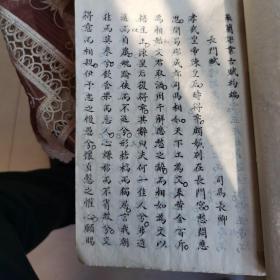 古賦約編
長門賦
司馬長卿
孝武皇帝陳皇后時得幸頗妒別在長門宮愁悶悲
思聞蜀郡成都司馬相如天下工為文奉黃金百斤
為相如文君取酒因于解悲愁之辭而相如為文以
悟主上陳皇后復得幸其辭曰夫何一佳人兮步逍
遙以自虞魂踰佚而不返兮形枯槁而獨居言我朝
往而暮來兮飲食樂而忘人心慊移而不省故兮交
得意而相親伊予志之慢愚兮懷貞愨之懽心願賜